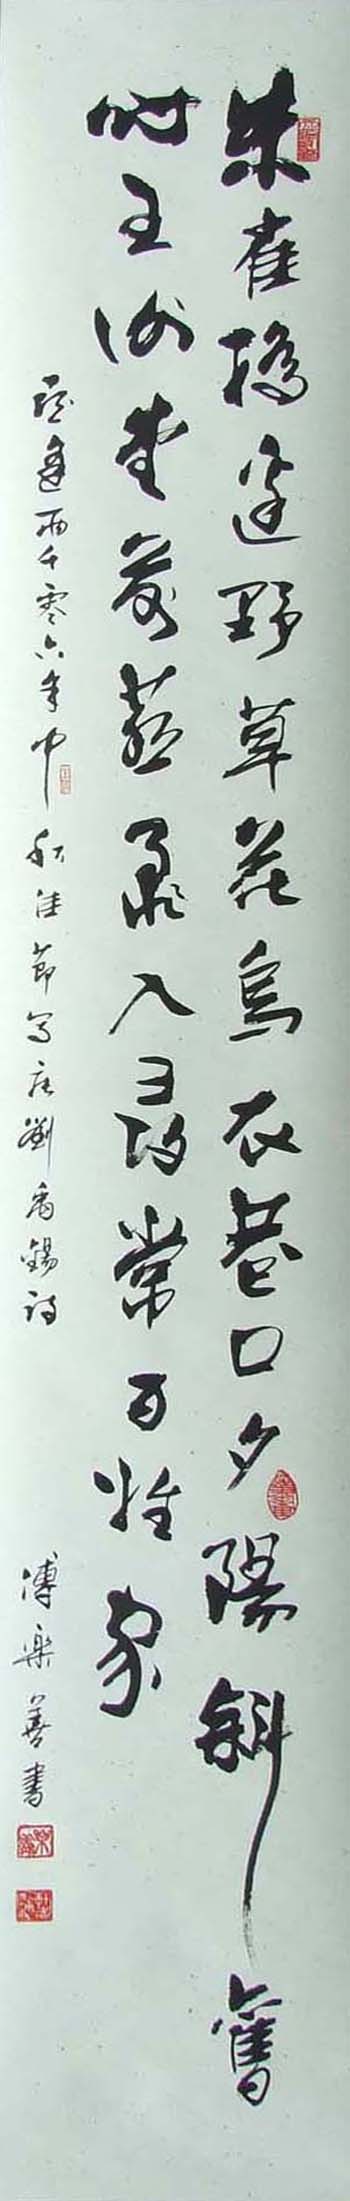 朱雀橋邊野草花烏衣巷口夕陽斜舊
時王謝堂前燕飛入尋常百姓家
逢兩千零六年中秋佳節寫唐劉禹錫詩 傅樂善書